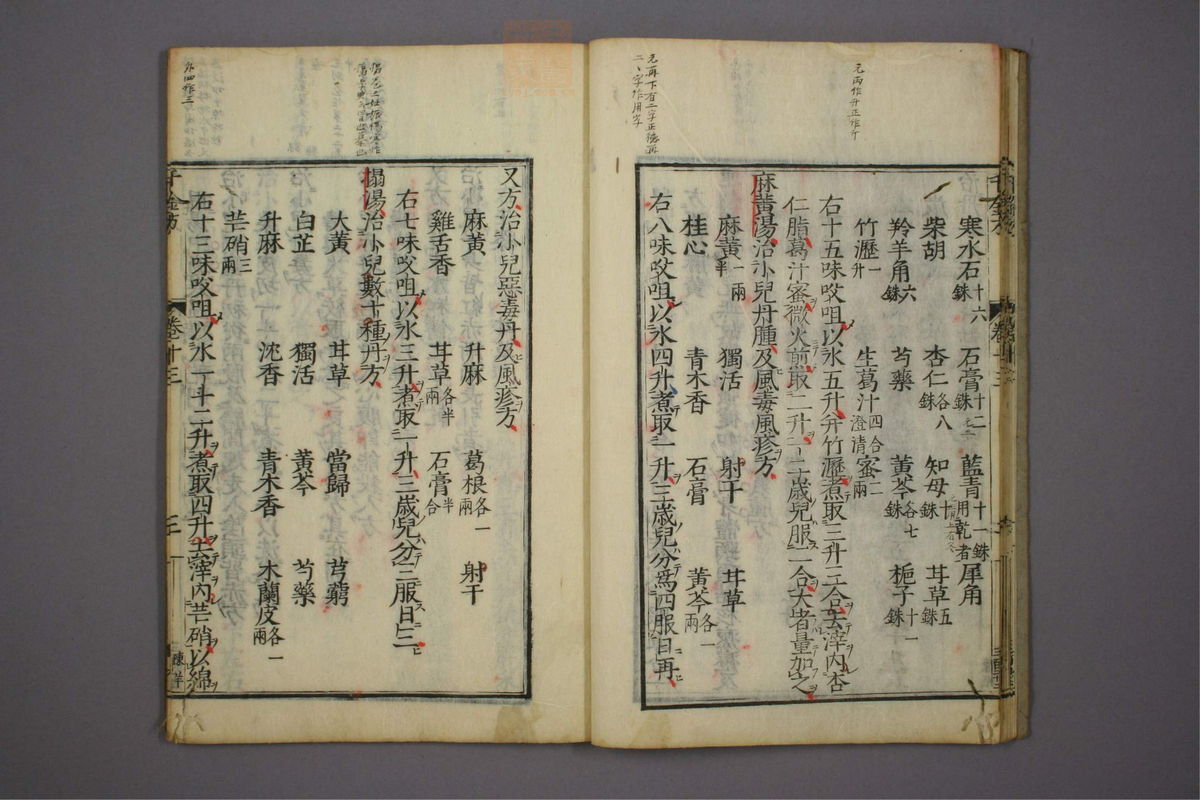 元両作升正作斤
元再下有二字正德再
二ヽ字作用字
寒水石十六銖　石膏十二銖　藍青十一銖用乾者　犀角
柴胡　杏仁各八銖　知母十銖　甘草五銖
羚羊角六銖　芍藥　黃芩各七銖　梔子十一銖
竹瀝一升　生葛汁四合澄清　蜜二兩
右十五味㕮咀以水五升并竹瀝煮取三升三合去滓內杏
仁脂葛汁蜜微火煎取二升一二歲兒服二合大者量加之
麻黃湯治小兒丹腫及風毒風疹方
麻黃一兩半　獨活　射干　甘草
桂心　青木香　石膏　黃芩各一兩
右八味㕮咀以水四升煮取一升三歲兒分爲四服日再
外四作三
又方治小兒惡毒丹及風疹方
麻黃　升麻　葛根各一兩　射干
雞舌香　甘草各半兩　石膏半合
右七味㕮咀以水三升煮取一升三歲兒分三服日三
搨湯治小兒數十種丹方
大黃　甘草　當歸　芎藭
白芷　獨活　黃芩　芍藥
升麻　沈香　青木香　木蘭皮各一兩
芒硝三兩
右十三味㕮咀以水一斗二升煮取四升去滓內芒硝以綿
千金方　卷十三